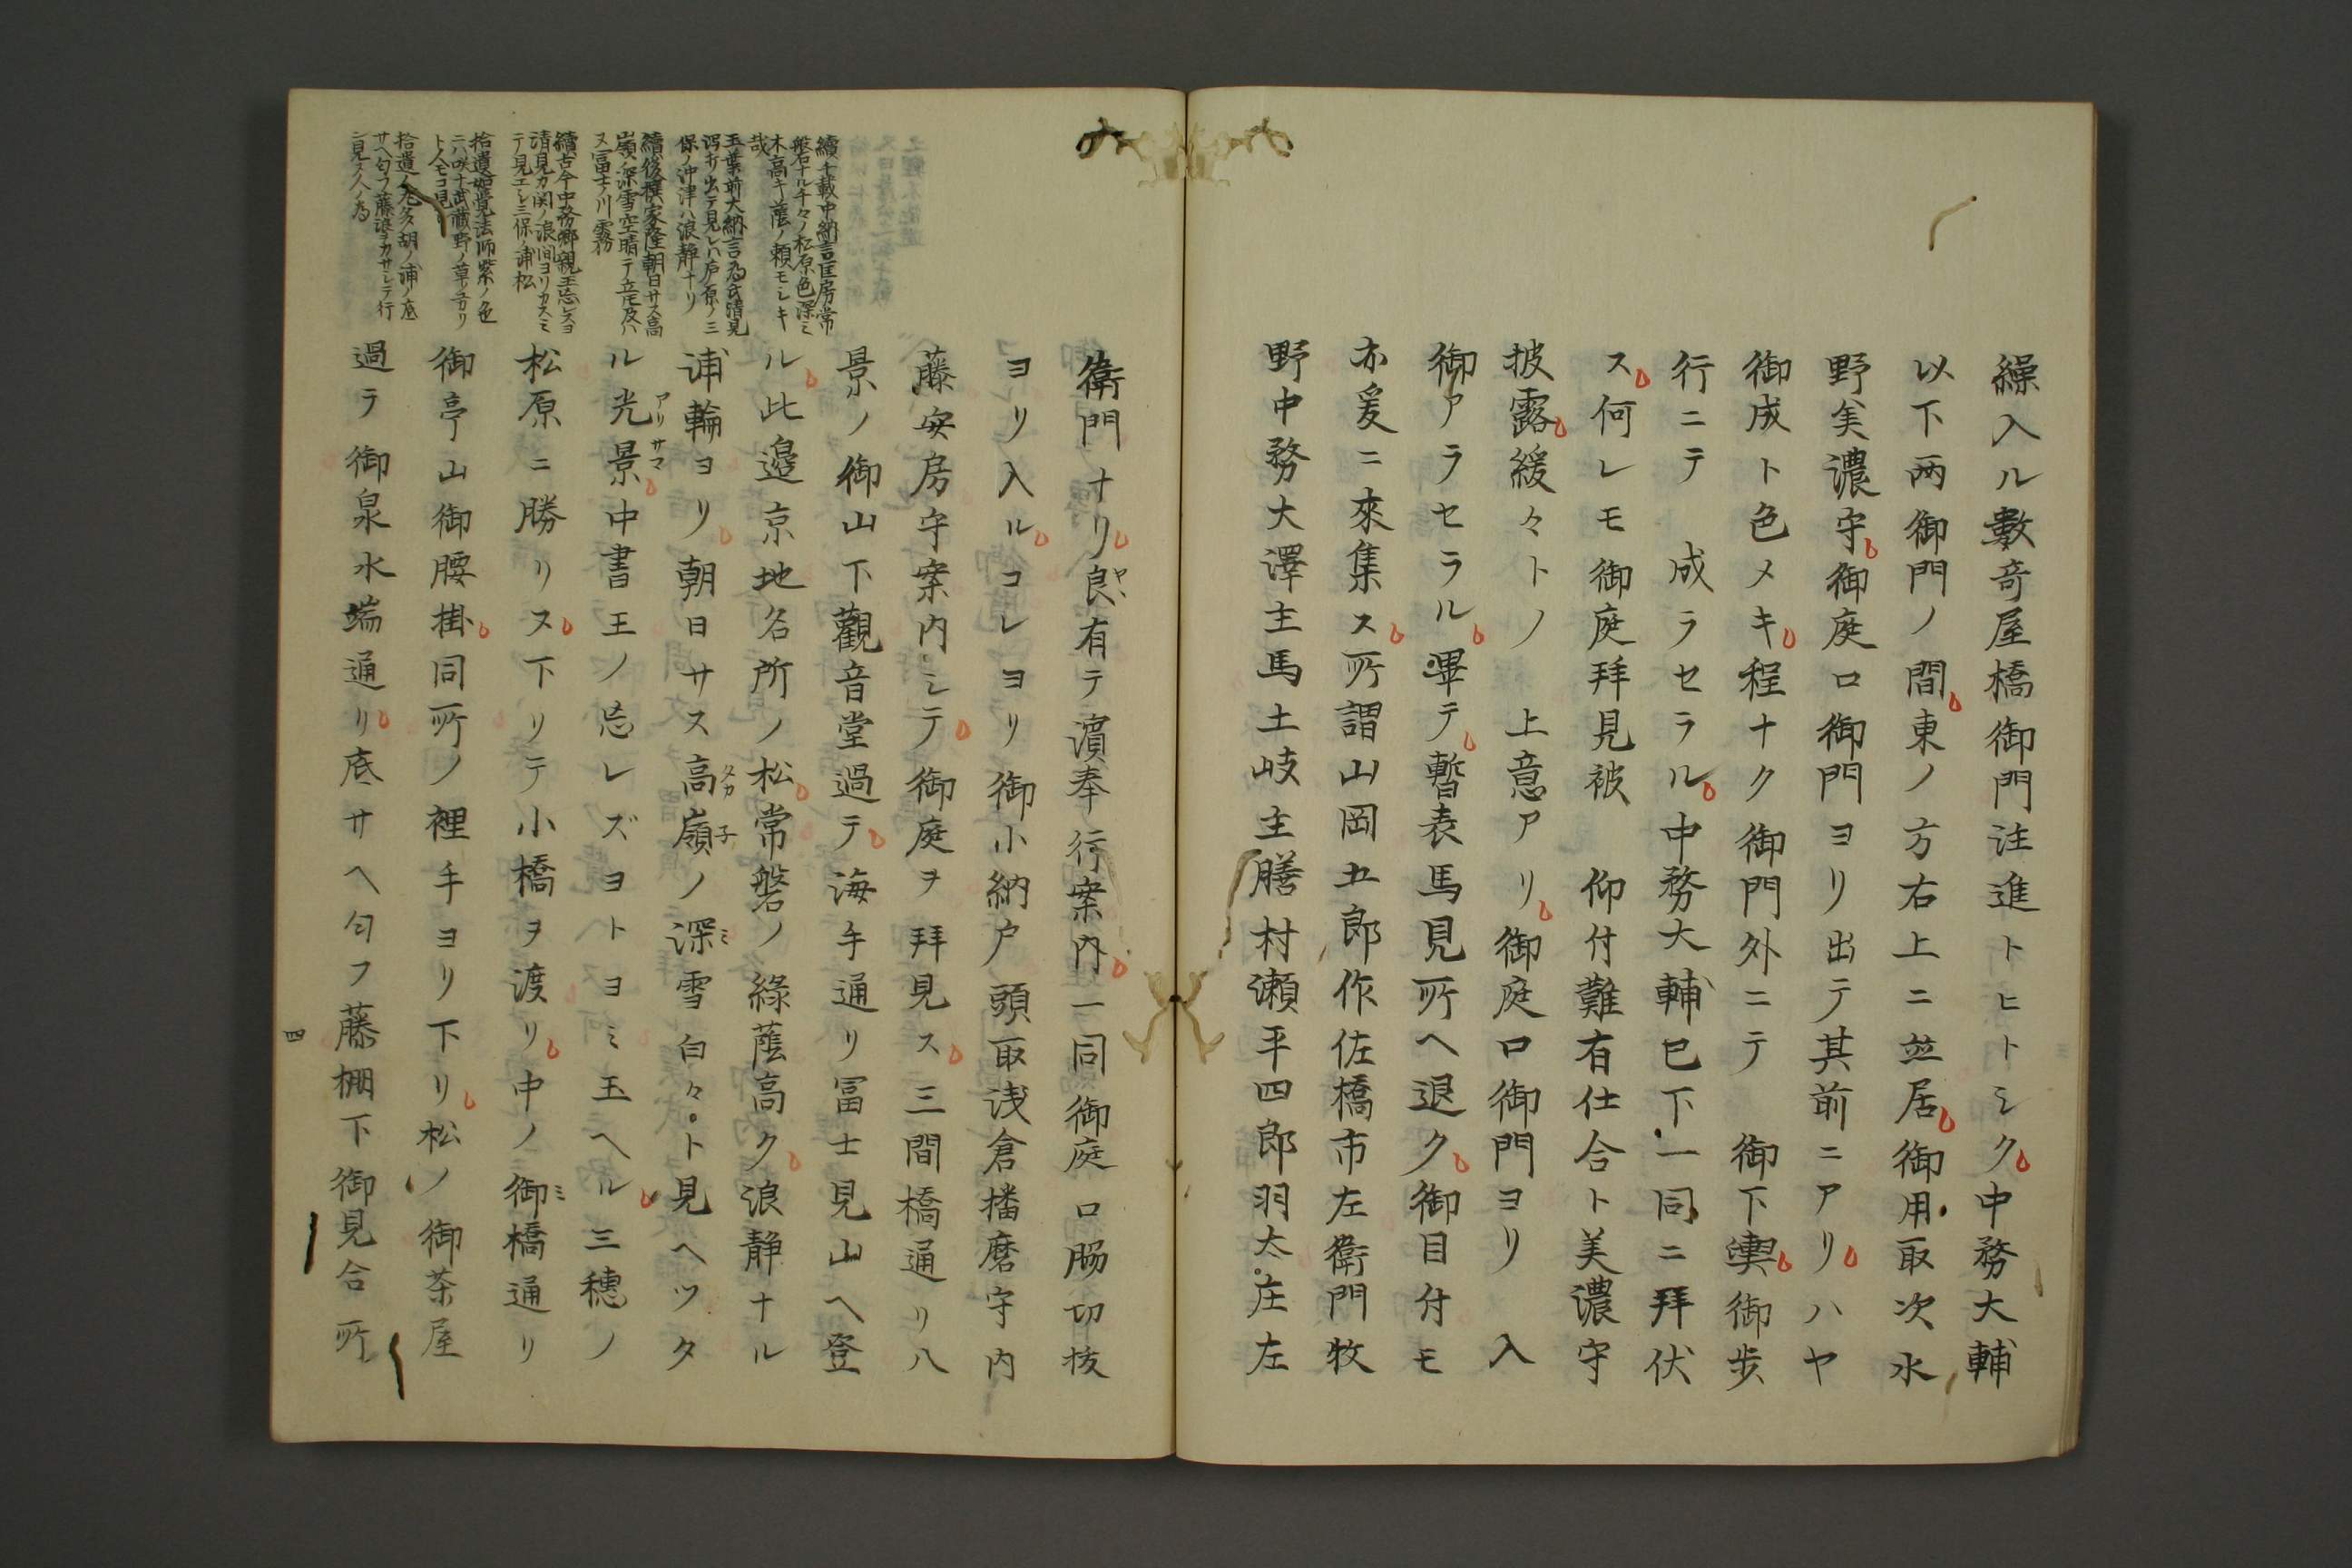 繰入ル數奇屋橋御門注進トヒトシク中務大輔
以下両御門ノ間東ノ方右上ニ並居御用取次水
野美濃守御庭口御門ヨリ出テ其前ニアリハヤ
御成ト色メキ程ナク御門外ニテ　御下輿御歩
行ニテ　成ラセラル中務大輔已下一同ニ拜伏
ス何レモ御庭拜見被　仰付難有仕合ト美濃守
披露緩々トノ　上意アリ御庭口御門ヨリ　入
御アラセラル畢テ暫表馬見所ヘ退ク御目付モ
亦爰ニ來集ス所謂山岡五郎作佐橋市左衛門牧
野中務大澤主馬土岐主膳村瀬平四郎羽太庄左
衛門ナリ良有テ濵奉行案内一同御庭口腸切抜
ヨリ入ルコレヨリ御小納戸頭取浅倉播磨守内
藤安房守案内シテ御庭ヲ拜見ス三間橋通リ八
景ノ御山下觀音堂過テ海手通リ冨士見山ヘ登
ル此邉京地名所ノ松常磐ノ綠蔭高ク浪静ナル
浦輪ヨリ朝日サス高嶺ノ深雪白々ト見ヘツタ
ル光景中書王ノ忘レズヨトヨミ玉ヘル三穗ノ
松原ニ勝リス下リテ小橋ヲ渡リ中ノ御橋通リ
御亭山御腰掛同所ノ裡手ヨリ下リ松ノ御茶屋
過テ御泉水端通リ底サヘ匂フ藤棚下御見合所
續千載中納言匡房常
磐ナル千々ノ松原色深ミ
木高キ蔭ノ頼モシキ
哉
玉葉前大納言為氏清見
泻打出テ見レハ庐原ノ三
保ノ沖津ハ浪静ナリ
續後撰家隆朝日サス高
嶺ノ深雪空晴テ立モ及ハ
ス冨士ノ川霧
續古今中務卿親王忘レスヨ
清見カ関ノ浪間ヨリカスミ
テ見エシ三保ノ浦松
拾遺如覺法師紫ノ色
ニハ咲ナ武藏野ノ草ノユカリ
ト人モコソ見レ
拾遺人丸多胡ノ浦ノ底
サヘ匂フ藤浪ヲカサシテ行
ン見ヌ人ノ為
四